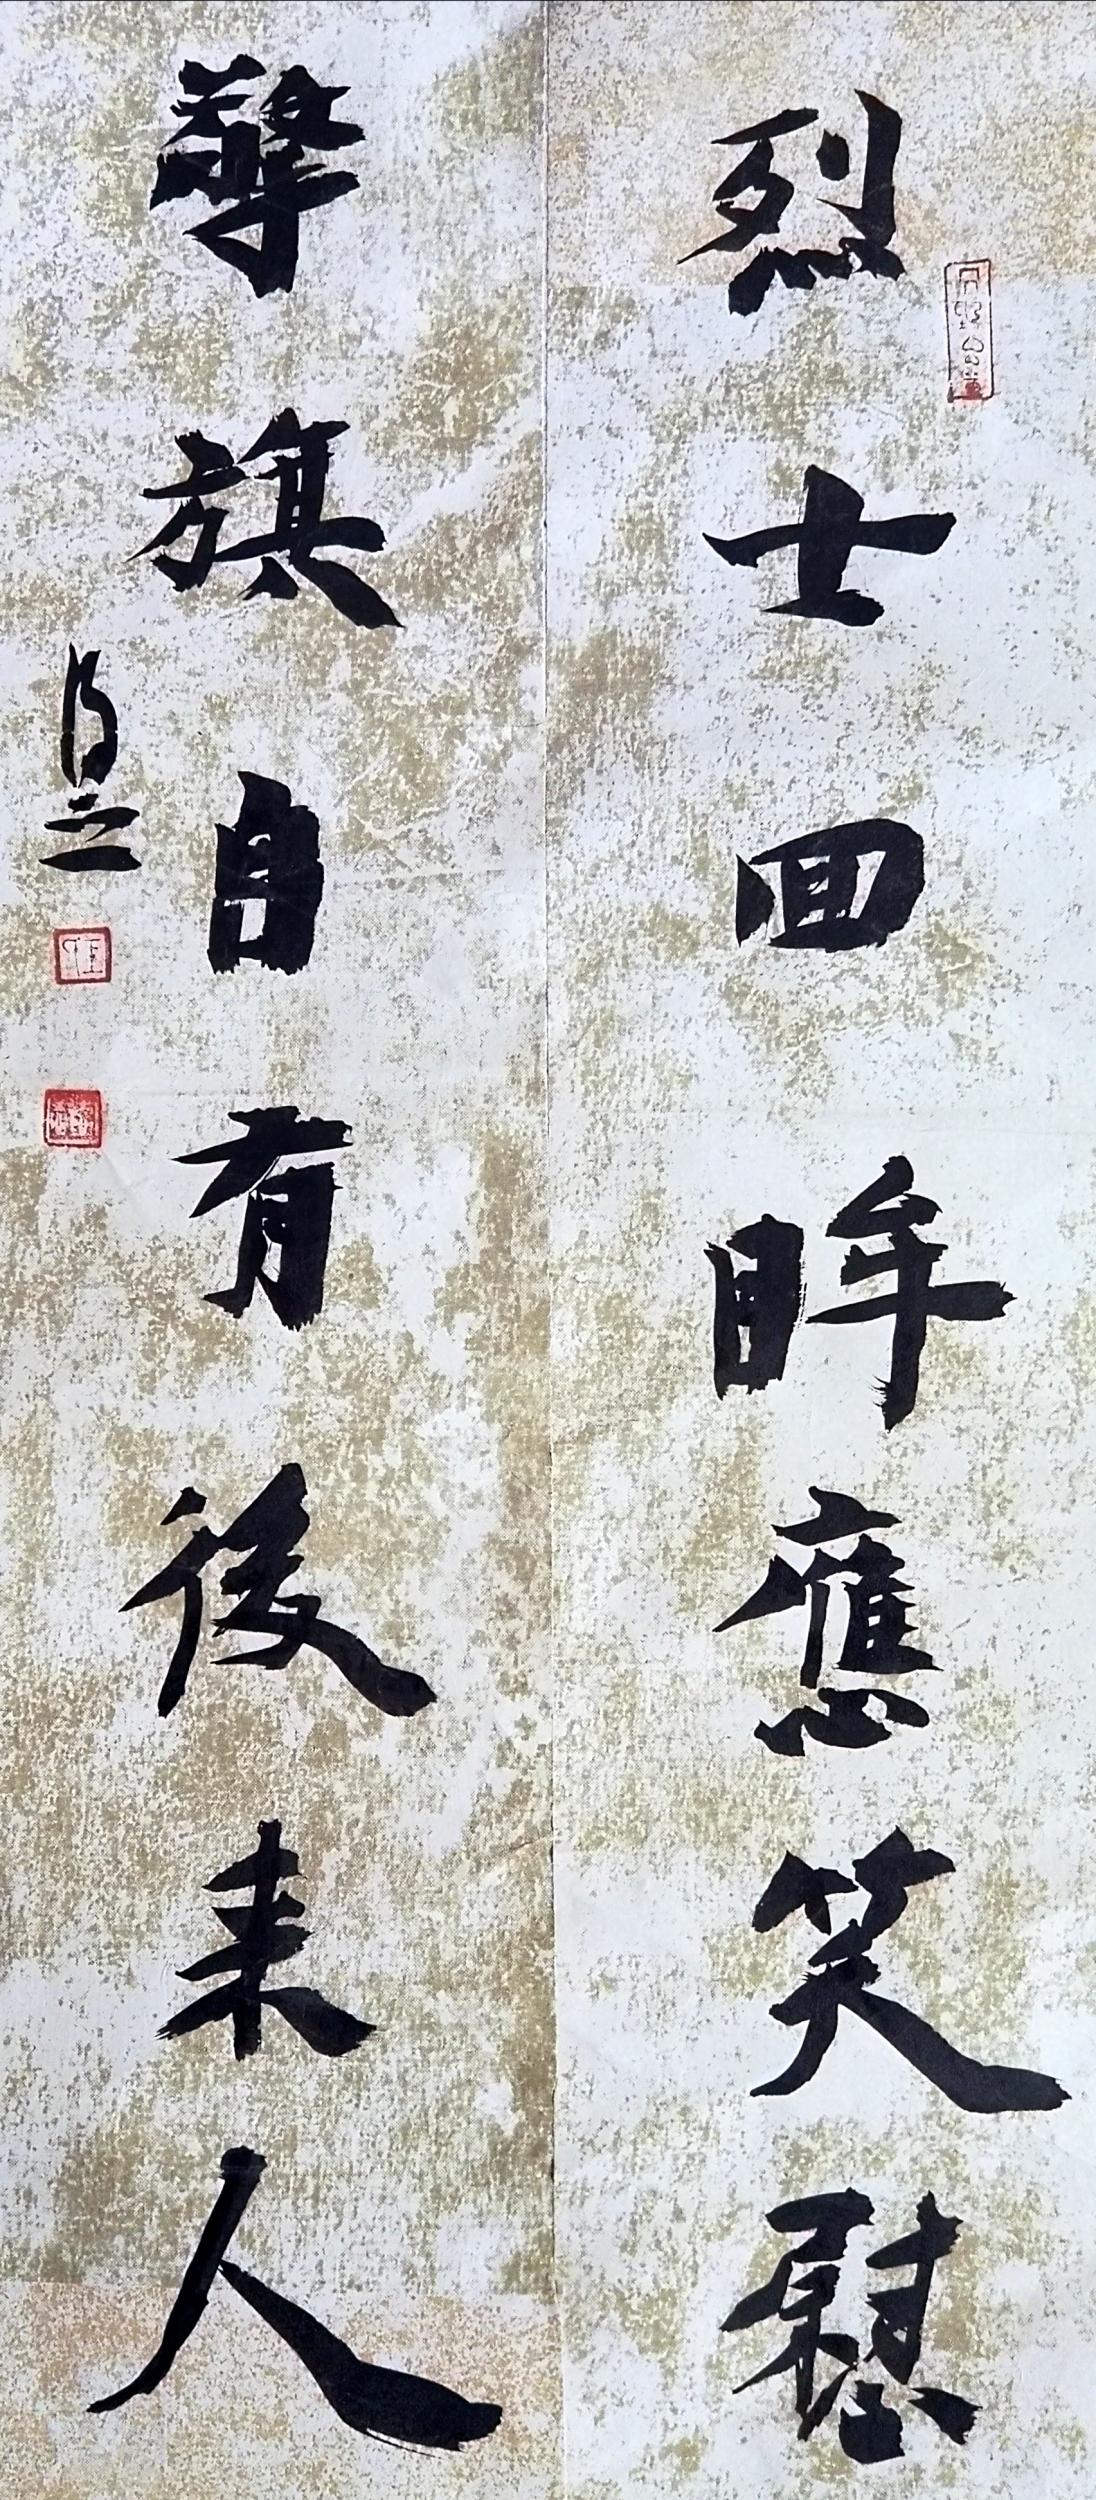 烈士回眸應笑慰
擎旗自有後來人